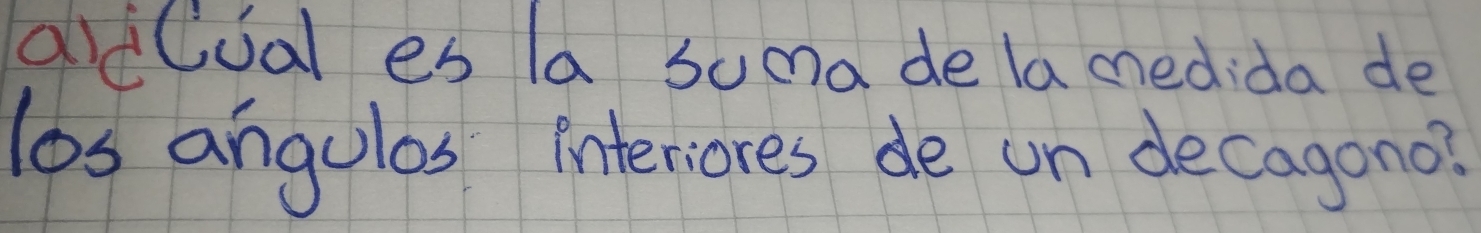 a)¿Cúal es la suma de la medida de
los ángulos interiores de un decagono?